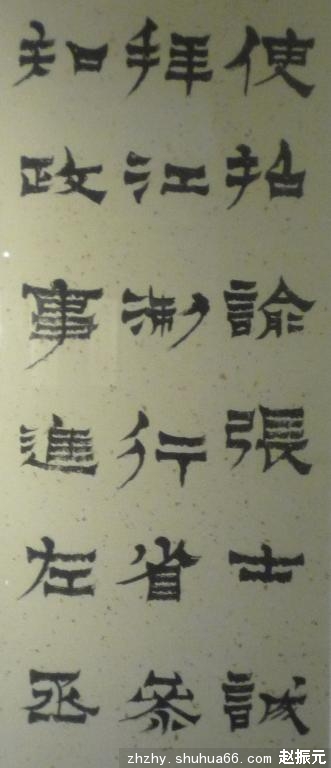 使招諭張士誠
拜江淛行省參
知政事進左丞
zhzhy.shuhua66.com 赵振元